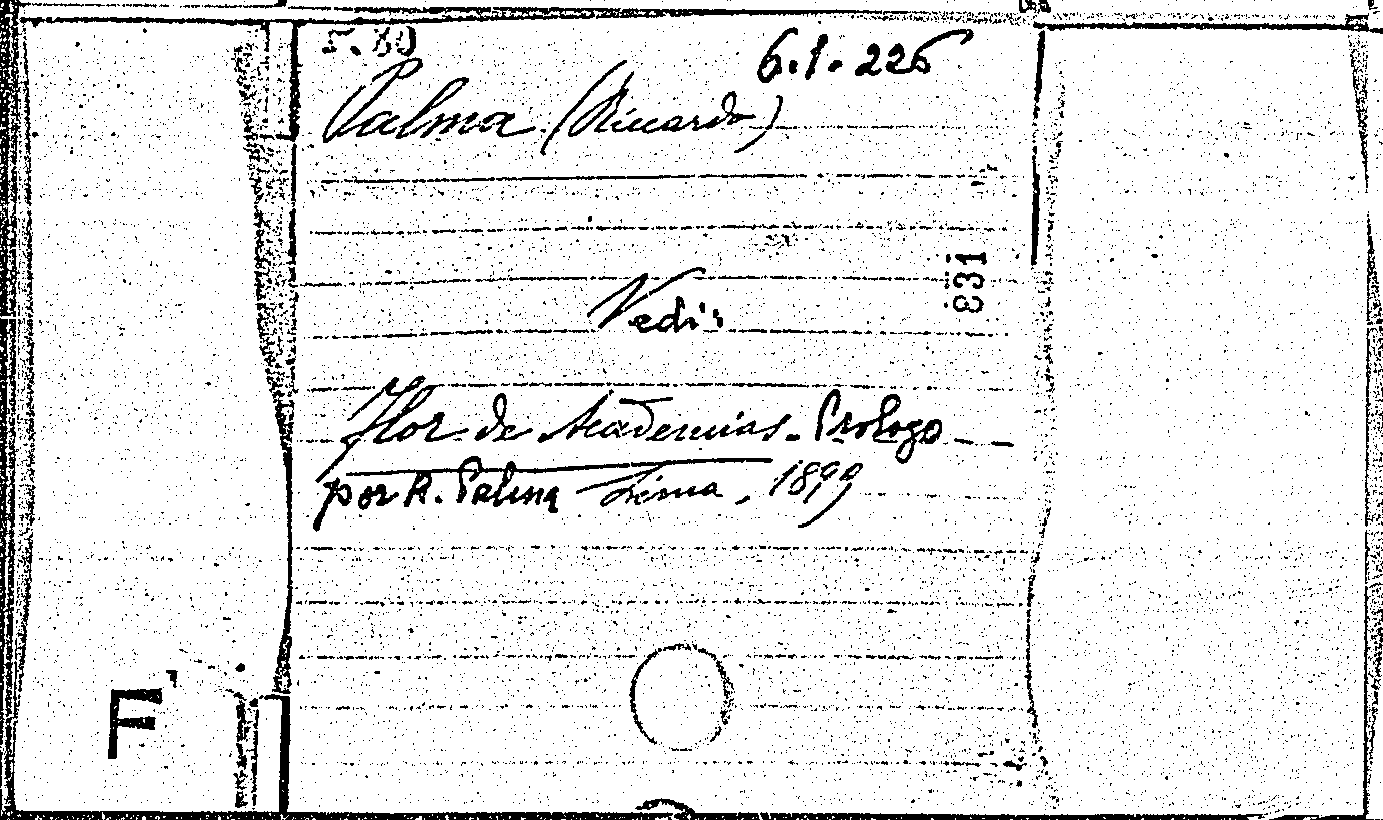 F. 80
6.1.226
Palma (Riccardo)
831
Vedi:
Flor de Academias. Prologo
por R. Palma Lima, 1899
F